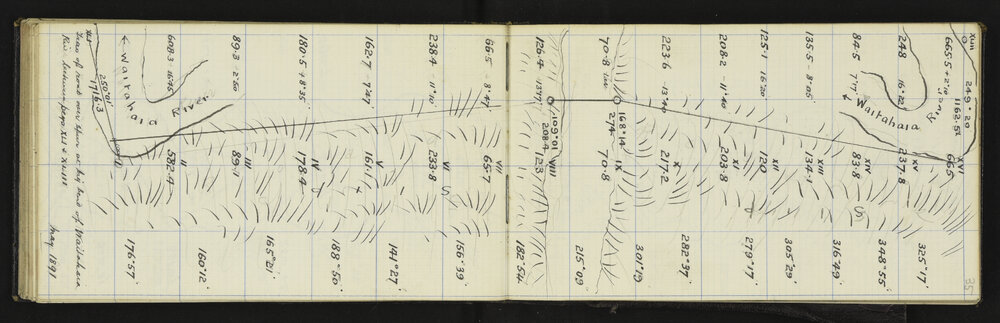 XVIII
249° 20'
1162.5
665.5 +2°10'
XVI
665
325°17'
River
248 16°22'
XV
237.8
348°55'
Waitahaia
84.5 7°7'
XIV
83.8
316°49'
135.5 - 8°05'
XIII
134.1
305°29'
125.1 - 16°20'
XII
120
279°17'
208.2 - 11°40'
XI
203.8
282°37'
223.6 - 13°40'
X
217.2
70.8
168°14'
274
IX
70.8
301°19'
126.4 13°17'
109°01'
208.4
VIII
123
215°09'
182°54'
665 - 8°47'
VII
65.7
156°39'
238.4 - 11°10'
VI
233.8
141°27'
162.7 - 7°47'
V
161.1
188°50'
180.5 + 8°35'
IV
178.4
165°21'
89.3 - 2°50'
III
89.1
160°12'
608.3 - 16°45'
II
582.4
176°57'
Waitahaia River
XLI
250°01'
1716.3
Trav of road over spur at big bend of Waitahaia
Riv between pegs XLI & XVIII
May 1891
35